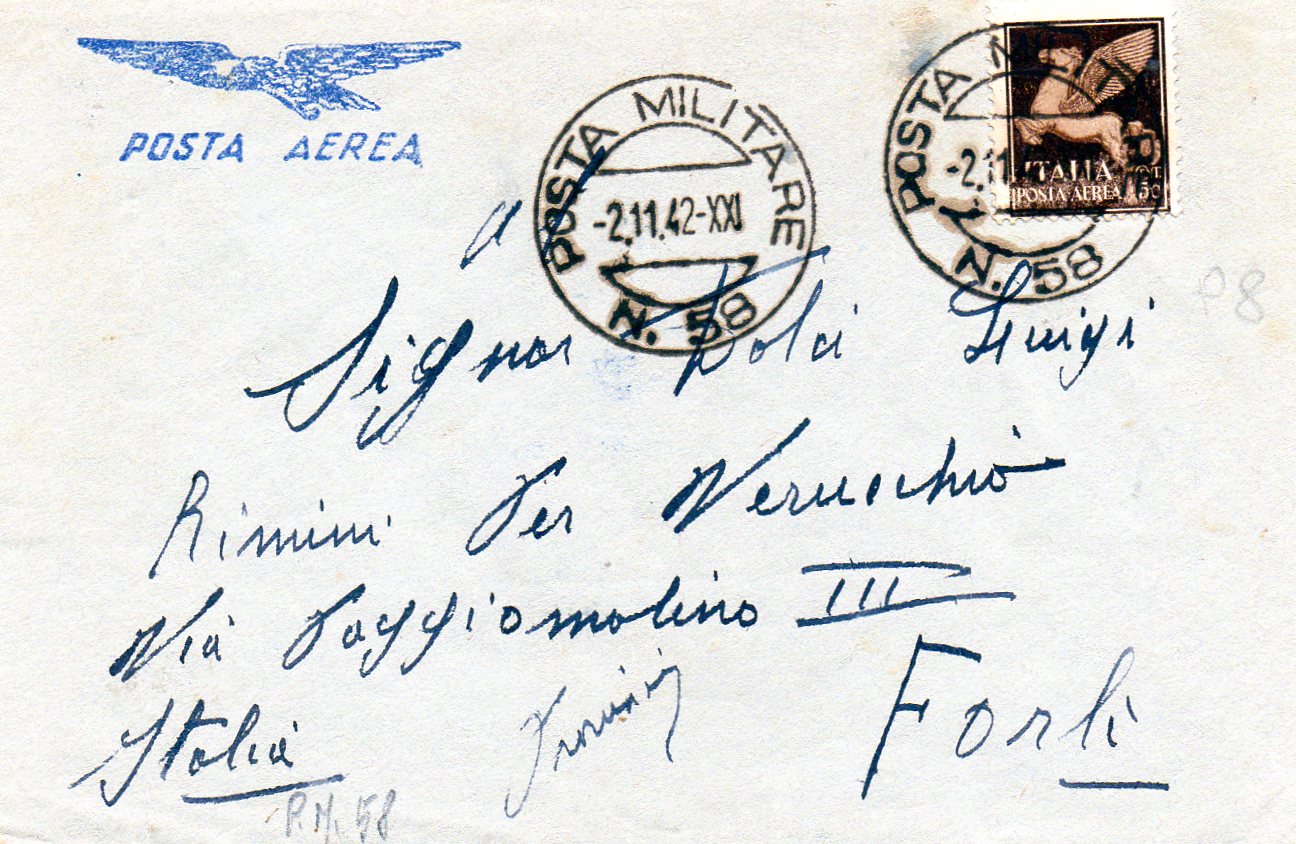 POSTA AEREA
POSTA MILITARE
-2.11.42-XXI
N. 58
POSTA MI
-2.11
N. 58
ITALIA
POSTA AEREA
CENT.
50
P8
a
Signor Dolci Luigi
Rimini Per Verucchio
Via Poggiomolino III
Italia
Forli
P.M. 58